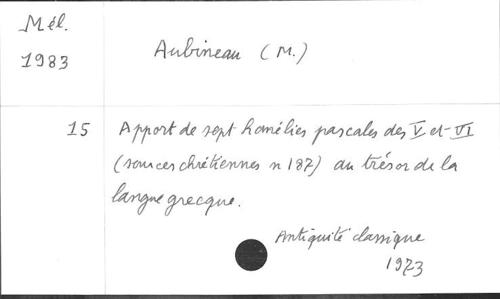 Mél.
1983
Aubineau (M.)
15
Apport de sept homélies pascales des V et VI
(sources chrétiennes n 187) au trésor de la
langue grecque.
Antiquité classique
1973